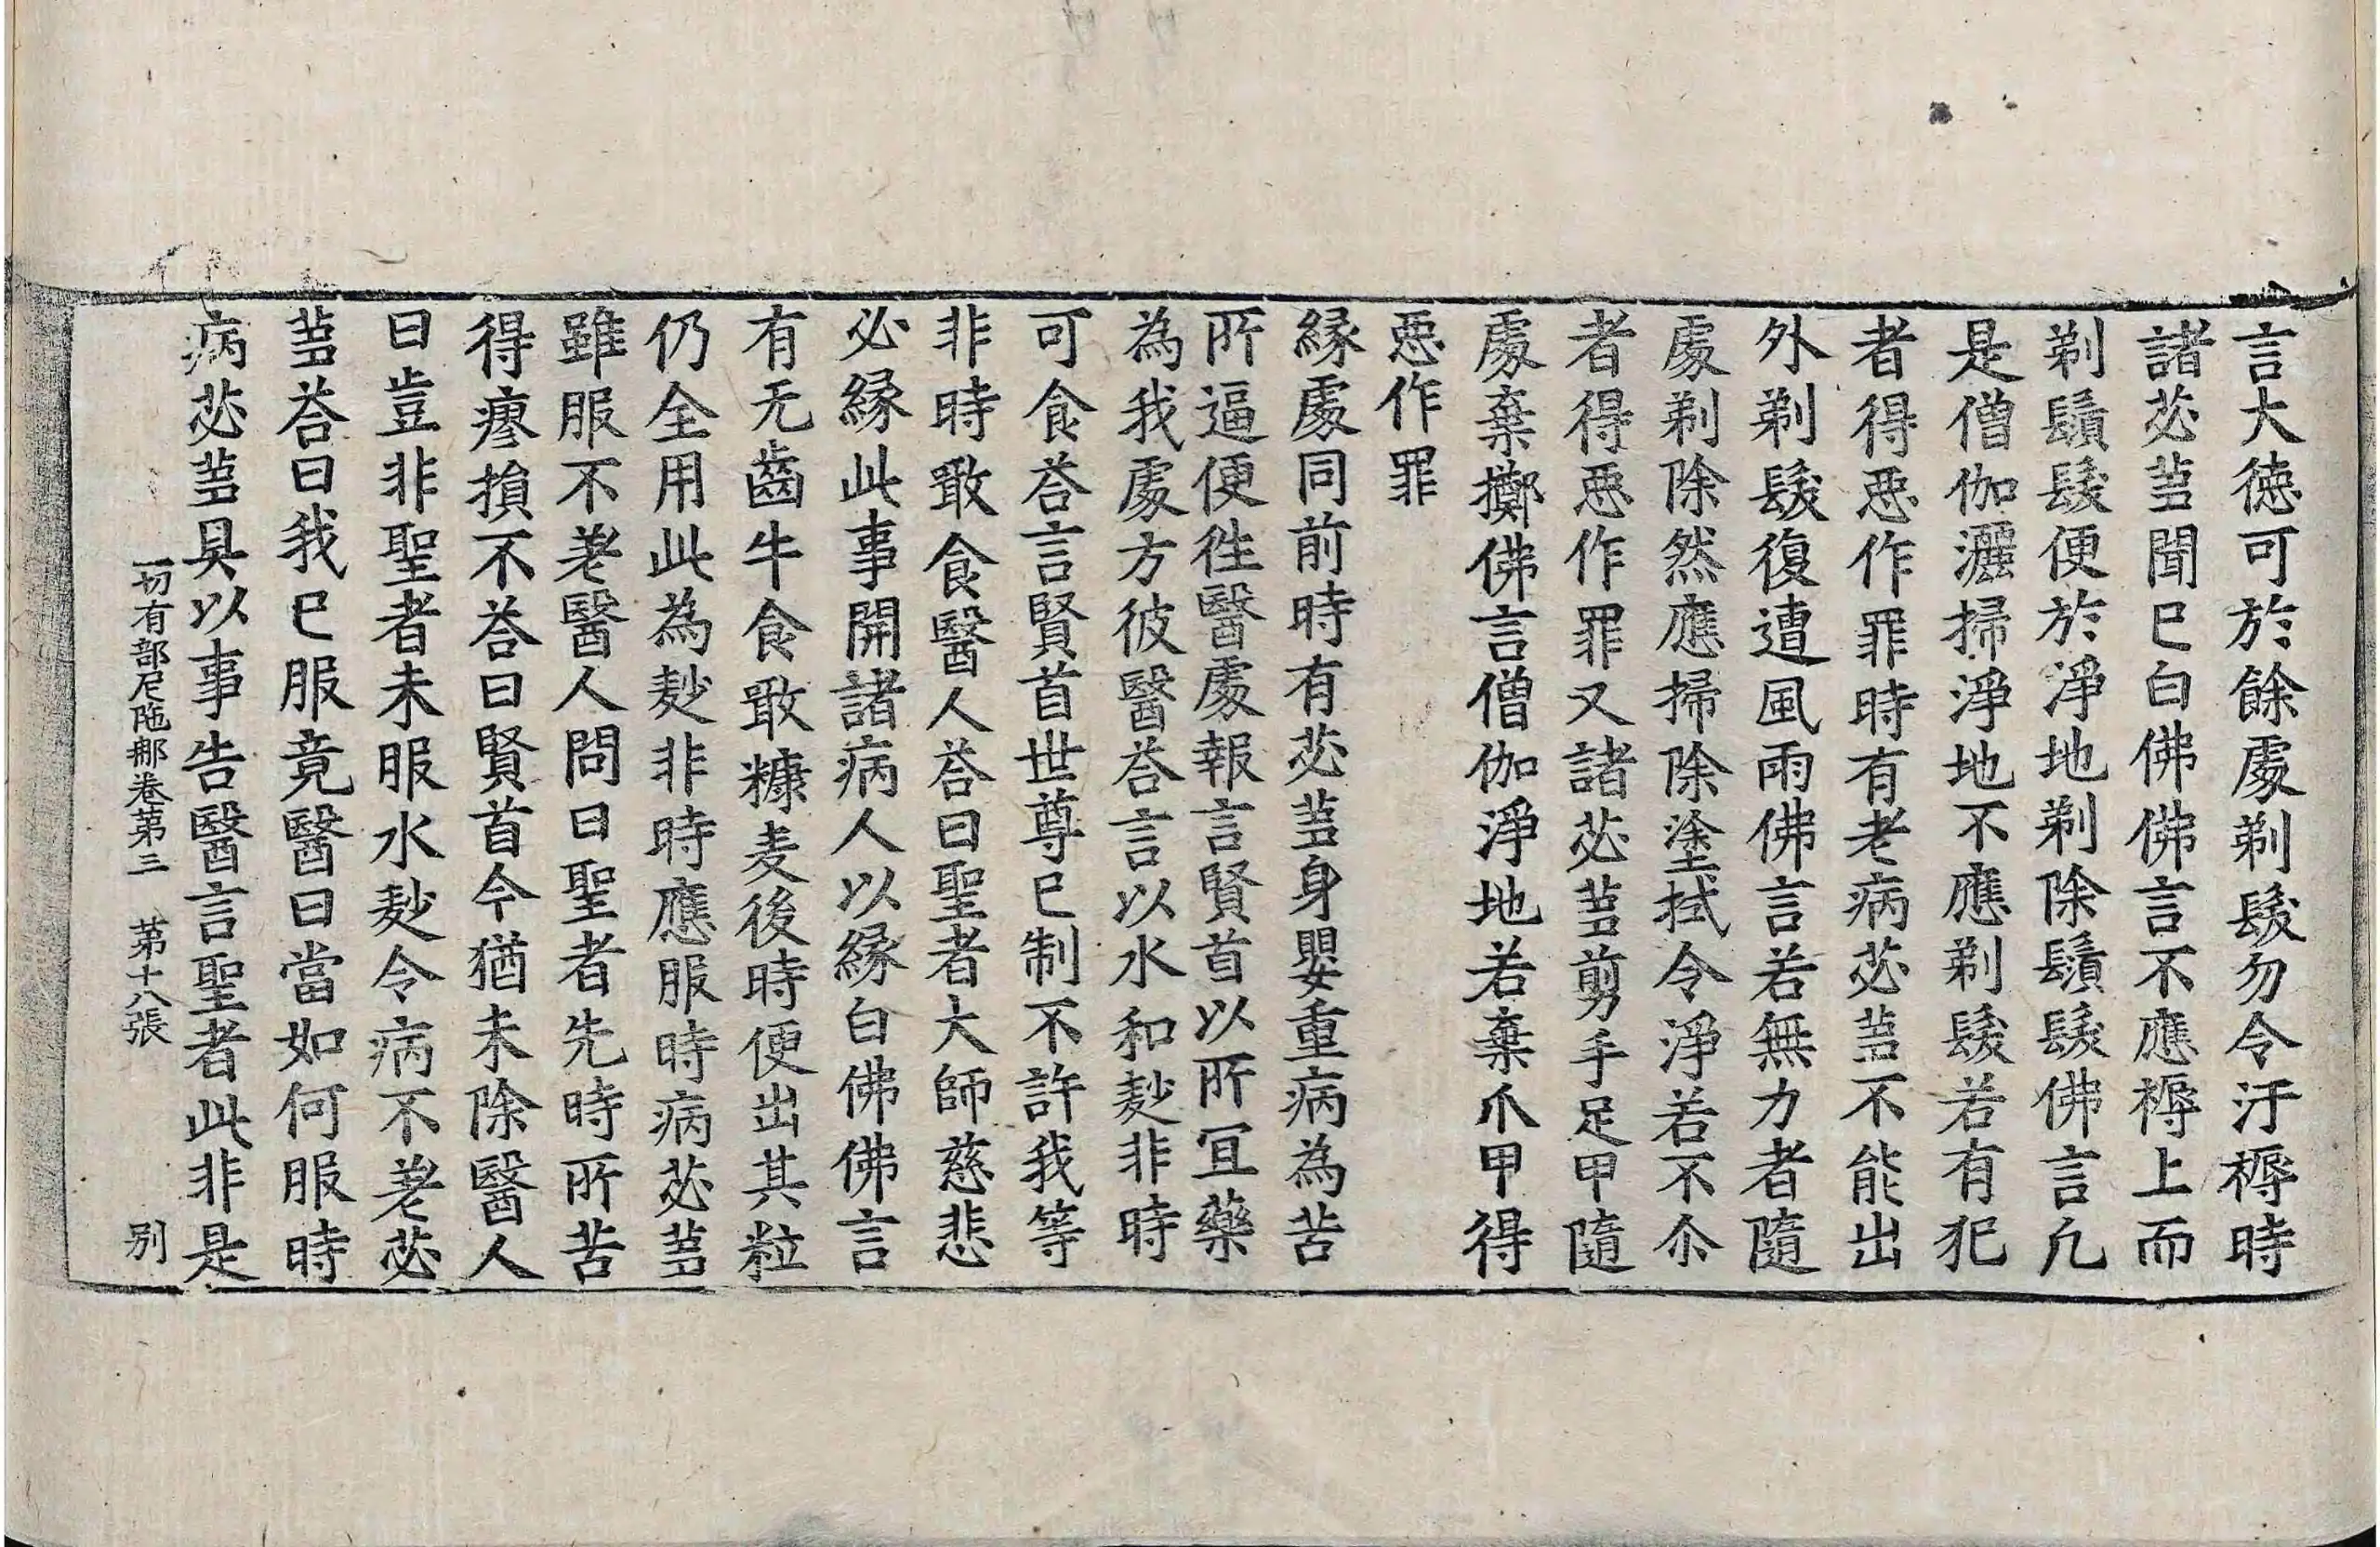 言大徳可於餘處剃髮勿令汙褥時
諸苾芻聞已白佛佛言不應褥上而
剃鬚髮便於淨地剃除鬚髮佛言凡
是僧伽灑掃淨地不應剃髮若有犯
者得惡作罪時有老病苾芻不能出
外剃髮復遭風雨佛言若無力者隨
處剃除然應掃除塗拭令淨若不尒
者得惡作罪又諸苾芻剪手足甲隨
處棄擲佛言僧伽淨地若棄爪甲得
惡作罪
緣處同前時有苾芻身嬰重病為苦
所逼便往醫處報言賢首以所宜藥
為我處方彼醫荅言以水和麨非時
可食荅言賢首世尊已制不許我等
非時噉食醫人荅曰聖者大師慈悲
必緣此事開諸病人以緣白佛佛言
有无齒牛食噉糠麦後時便出其粒
仍全用此為麨非時應服時病苾芻
雖服不差醫人問曰聖者先時所苦
得瘳損不荅曰賢首今猶未除醫人
曰豈非聖者未服水麨令病不差苾
芻荅曰我已服竟醫曰當如何服時
病苾芻具以事告醫言聖者此非是
一切有部尼陁那卷第三 第十八張 別